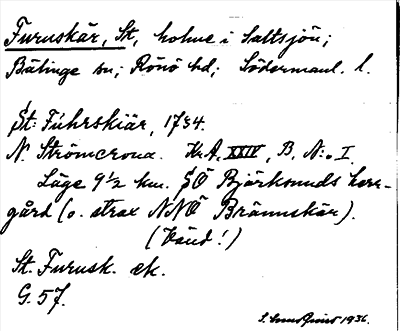 Furuskär, St, holme i Saltsjön;
Bälinge sn; Rönö hd; Södermanl. l.
St: Fuhrskiär, 1734.
N. Strömcrona. Kr.A. XXIV, B. N:o I.
Läge 9½ km. SÖ Björksunds herr-
gård (o. strax NNÖ Brännskär).
(Vänd!)
St. Furusk. ek.
G. 57.
1936.